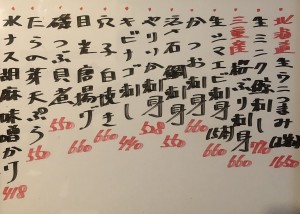 北海道
生ウニつまみ 1650
生ミンク鯨刺し 770
三重産
桜ぶり刺身 660
生シマエビ刺 660
かつお刺身 660
真鯛刺身 550
やりいか刺身 528
キビナゴ刺し 440
穴子白焼き 660
目光唐揚げ 660
磯つぶ貝煮 550
たらの芽天ぷら 550
水ナス胡麻味噌かけ 418